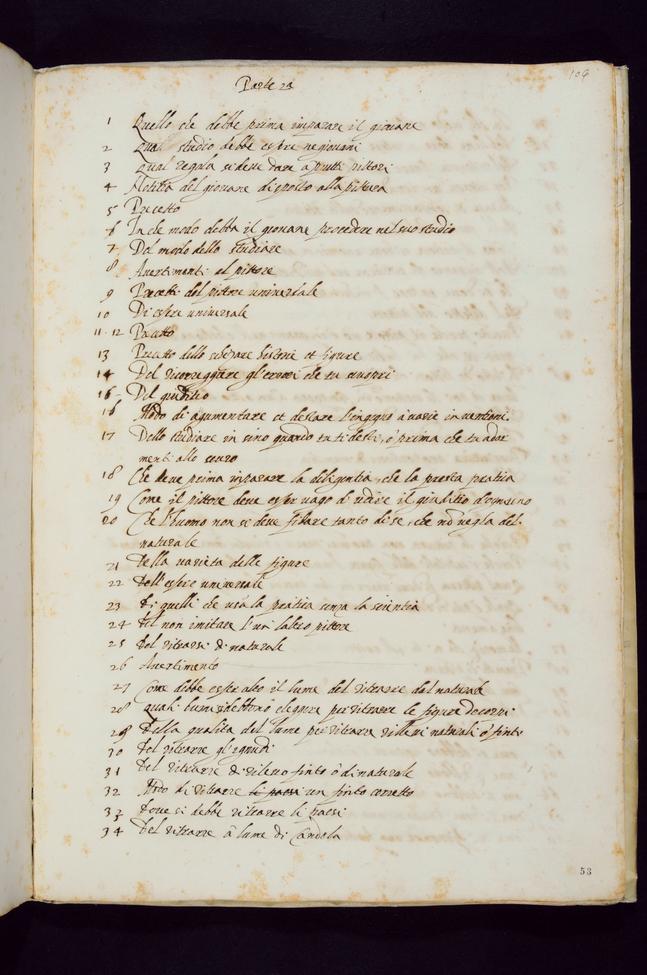 Parte 2a
109
1 Quello che debbe prima imparare il giovane
2 Qual studio debbe essere ne giovani
3 Qual regola si deve dare a putti pittori
4 Notitia del giovane disposto alla pittura
5 Precetto
6 In che modo debba il giovane procedere nel suo studio
7 Del modo dello studiare
8 Avertimenti al pittore
9 Precetti del pittore universale
10 Di essere universale
11 . 12 Precetto
13 Precetto dello schizare historie et figure
14 Del ricorreggere gl'errori che tu scuopri
15 Del giuditio
16 Modo di agumentare et destare l'ingegno a varie inventioni
17 Dello studiare in sino quando tu ti desti, ò prima che tu ador
menti allo scuro
18 Che deve prima imparare la diligentia, che la presta pratica
19 Come il pittore deve esser vago d'udire il giuditio d'ogn'uno
20 Che l'huomo non si deve fidare tanto di se, che nõ vegla del
naturale
21 Della varieta delle figure
22 Dell'essere universale
23 Di quelli che usã la pratica senza la scientia
24 Del non imitare l'un l'altro pittore
25 Del ritrarsi di naturale
26 Avertimento
27 Come debbe esser alto il lume del ritrarre del naturale
28 quali lumi si debbono elegere per ritrarre le figure de corpi
29 Della qualita del lume per ritrarre rilievi naturali ò finti
30 Del ritrarre gl'ignudi
31 Del ritrarre di rilievo finto ò di naturale
32 Modo di ritrarre li paesi un sito corretto
33 Dove si debbe ritrarre li paesi
34 Del ritrarre à lume di Candela
53